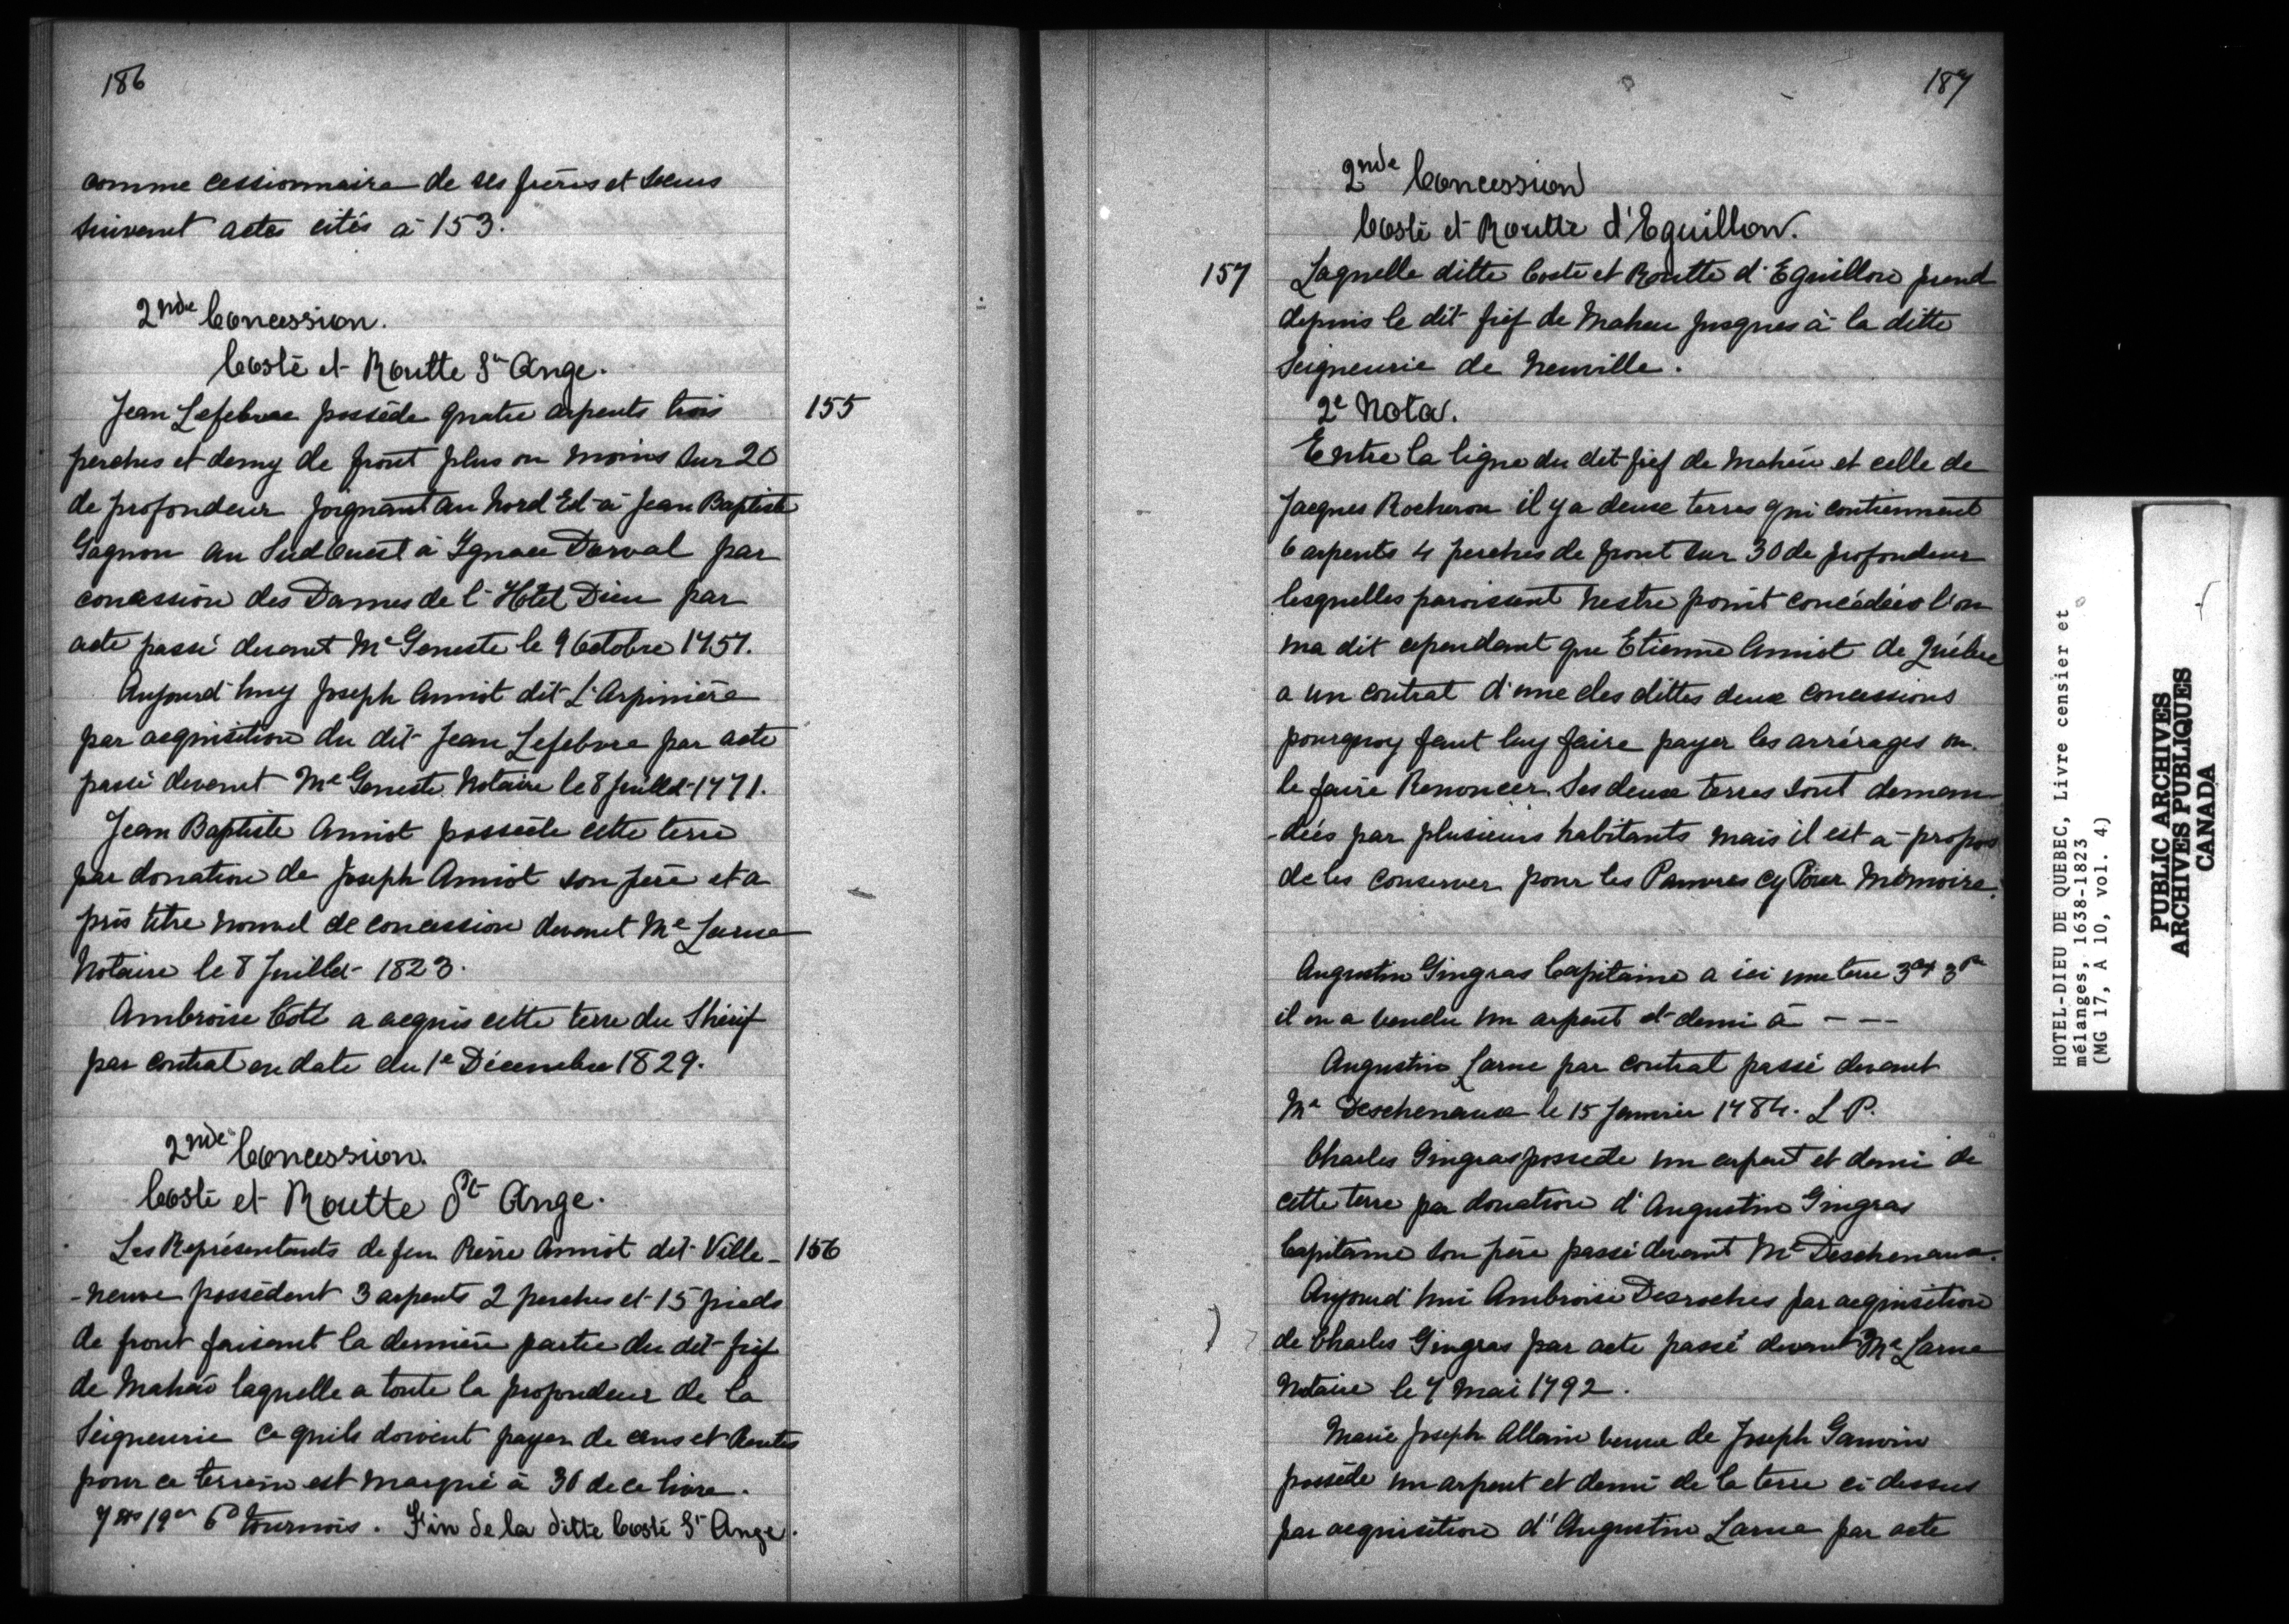 186
comme cessionnaire de ses frères et Soeurs
suivant actes cités à 153.
2nde Concession.
Costé et Routte St Ange.
Jean Lefebvre possède quatre arpents trois
155
perches et demy de front plus ou moins sur 20
de profondeur joignant au Nord Est à Jean Baptiste
Gagnon au Sud Ouest à Ignace Dorval par
concession des Dames de l'Hôtel Dieu par
acte passé devant Me Geneste le 9 Octobre 1757.
Aujourd'huy Joseph Amiot dit L'Arpinière
par acquisition du dit Jean Lefebvre par acte
passé devant Me Geneste Notaire le 8 Juillet 1771.
Jean Baptiste Amiot possède cette terre
par donation de Joseph Amiot son père et a
pris titre nouvel de concession devant Me Larue
Notaire le 8 Juillet 1823.
Ambroise Coté a acquis cette terre du Shérif
par contrat en date du 1e Décembre 1829.
2nde Concession.
Costé et Routte St Ange.
Les Représentants de feu Pierre Amiot dit Ville-
156
-neuve possèdent 3 arpents 2 perches et 15 pieds
de front faisant la dernière partie du dit fief
de Mahëu laquelle a toute la profondeur de la
Seigneurie ce quils doivent payer de cens et Rentes
pour ce terrein est marqué à 36 de ce livre.
7 19 6d tournois. Fin de la ditte Costé St Ange.
187
2nde Concession
Costé et Routte d'Eguillon.
157
Laquelle ditte Costé et Routte d'Eguillon prend
depuis le dit fief de Maheu jusques à la ditte
Seigneurie de Neuville.
2e Nota.
Entre la ligne du dit fief de Mahëu et celle de
Jacques Rocheron il y a deux terres qui contiennent
6 arpents 4 perches de front sur 30 de profondeur
lesquelles paroissent nestre point concédées l'on
ma dit cependant que Etienne Amiot de Québec
a un contrat d'une des dittes deux concessions
pourquoy faut luy faire payer les arrérages ou
le faire Renoncer. Ses deux terres sont deman-
-dées par plusieurs habitants mais il est à propos
de les conserver pour les Pauvres cy Pour Mémoire.
Augustin Gingras Capitaine a ici une terre 3 3
il en a vendu un arpent et demi à - - -
Augustin Larue par contrat passé devant
Me Deschenaux le 15 Janvier 1784. L P.
Charles Gingras possede un arpent et demi de
cette terre par donation d'Augustin Gingras
Capitaine son père passé devant Me Deschenaux.
Aujourd'hui Ambroise Desroches par acquisition
de Charles Gingras par acte passé devant Me Larue
Notaire le 7 Mai 1792.
Marie Joseph Allain veuve de Joseph Gauvin
possède un arpent et demi de la terre ci dessus
par acquisition d'Augustin Larue par acte
HOTEL-DIEU DE QUEBEC, Livre censier et
mélanges, 1638-1823
(MG 17, A 10, vol. 4)
PUBLIC ARCHIVES
ARCHIVES PUBLIQUES
CANADA